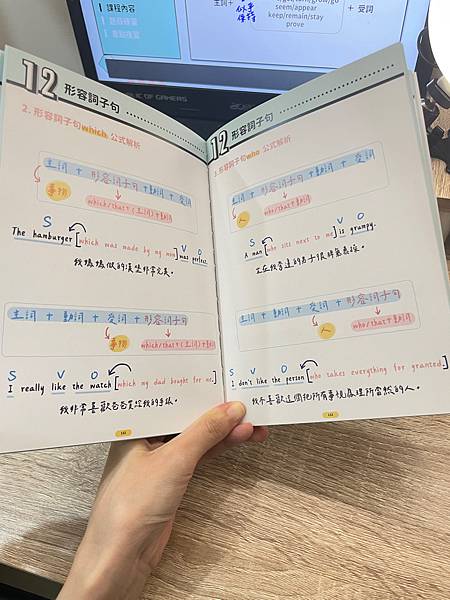 課程內容
主詞+
似乎
保持
seem/appear
keep/remain/stay
prove
+ 受詞
REPUBLIC OF GAMERS
12 形容詞子句
2. 形容詞子句which 公式解析
主詞 + 形容詞子句 + 動詞 + 受詞
事物
which/that+(主詞)+動詞
S V O
The hamburger [which was made by my mom] was perfect.
我媽媽做的漢堡非常完美。
主詞 + 動詞 + 受詞 + 形容詞子句
事物
which/that+(主詞)+動詞
S V O
I really like the watch [which my dad bought for me.]
我非常喜歡爸爸買給我的手錶。
12 形容詞子句
形容詞子句who 公式解析
主詞 + 形容詞子句 + 動詞 + 受詞
人
who/that+動詞
S V O
A man [who sits next to me] is grumpy.
坐在我旁邊的男子很
主詞 + 動詞 + 受詞 + 形容詞子句
人
who/that+動詞
S V O
I don't like the person [who takes everything for granted.]
我不喜歡這個把所有事視為理所當然的人。